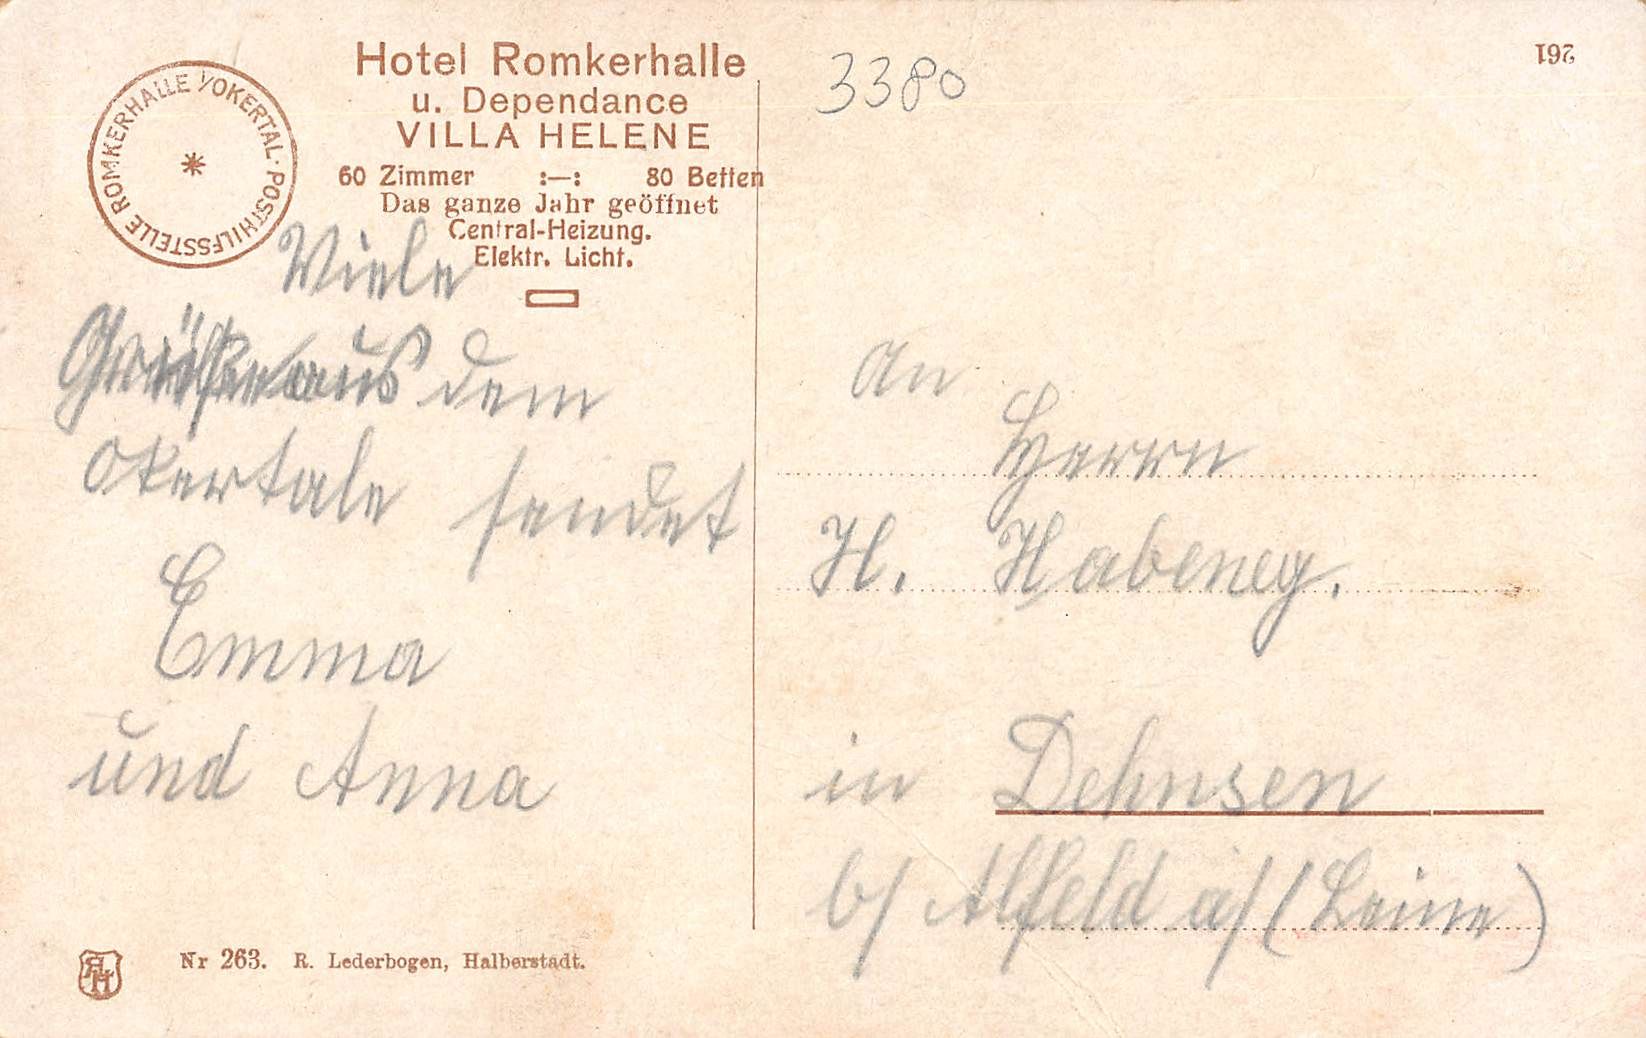 ROMKERHALLE /OKERTAL · POSTHILFSSTELLE
Hotel Romkerhalle
u. Dependance
VILLA HELENE
60 Zimmer :—: 80 Betten
Das ganze Jahr geöffnet
Central-Heizung.
Elektr. Licht.
Viele
Grüße aus dem
Okertale sendet
Emma
und Anna
Nr 263. R. Lederbogen, Halberstadt.
3380
261
An
Herrn
H. Habeney.
in Dehnsen
b/ Alfeld a/ (Leine)